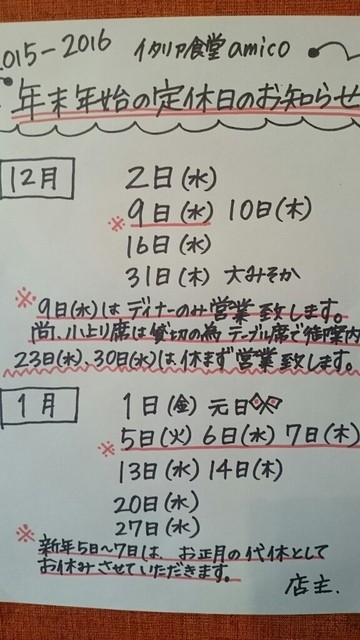 2015-2016 イタリア食堂amico
年末年始の定休日のお知らせ
12月
2日(水)
※9日(水) 10日(木)
16日(水)
31日(木) 大みそか
※9日(水)はディナーのみ営業致します。
尚、小上り席は貸切の為テーブル席で御案内
23日(水)、30日(水)は休まず営業致します。
1月
1日(金) 元日
※5日(火) 6日(水) 7日(木)
13日(水) 14日(木)
20日(水)
27日(水)
※新年5日~7日は、お正月の代休として
お休みさせていただきます。
店主.